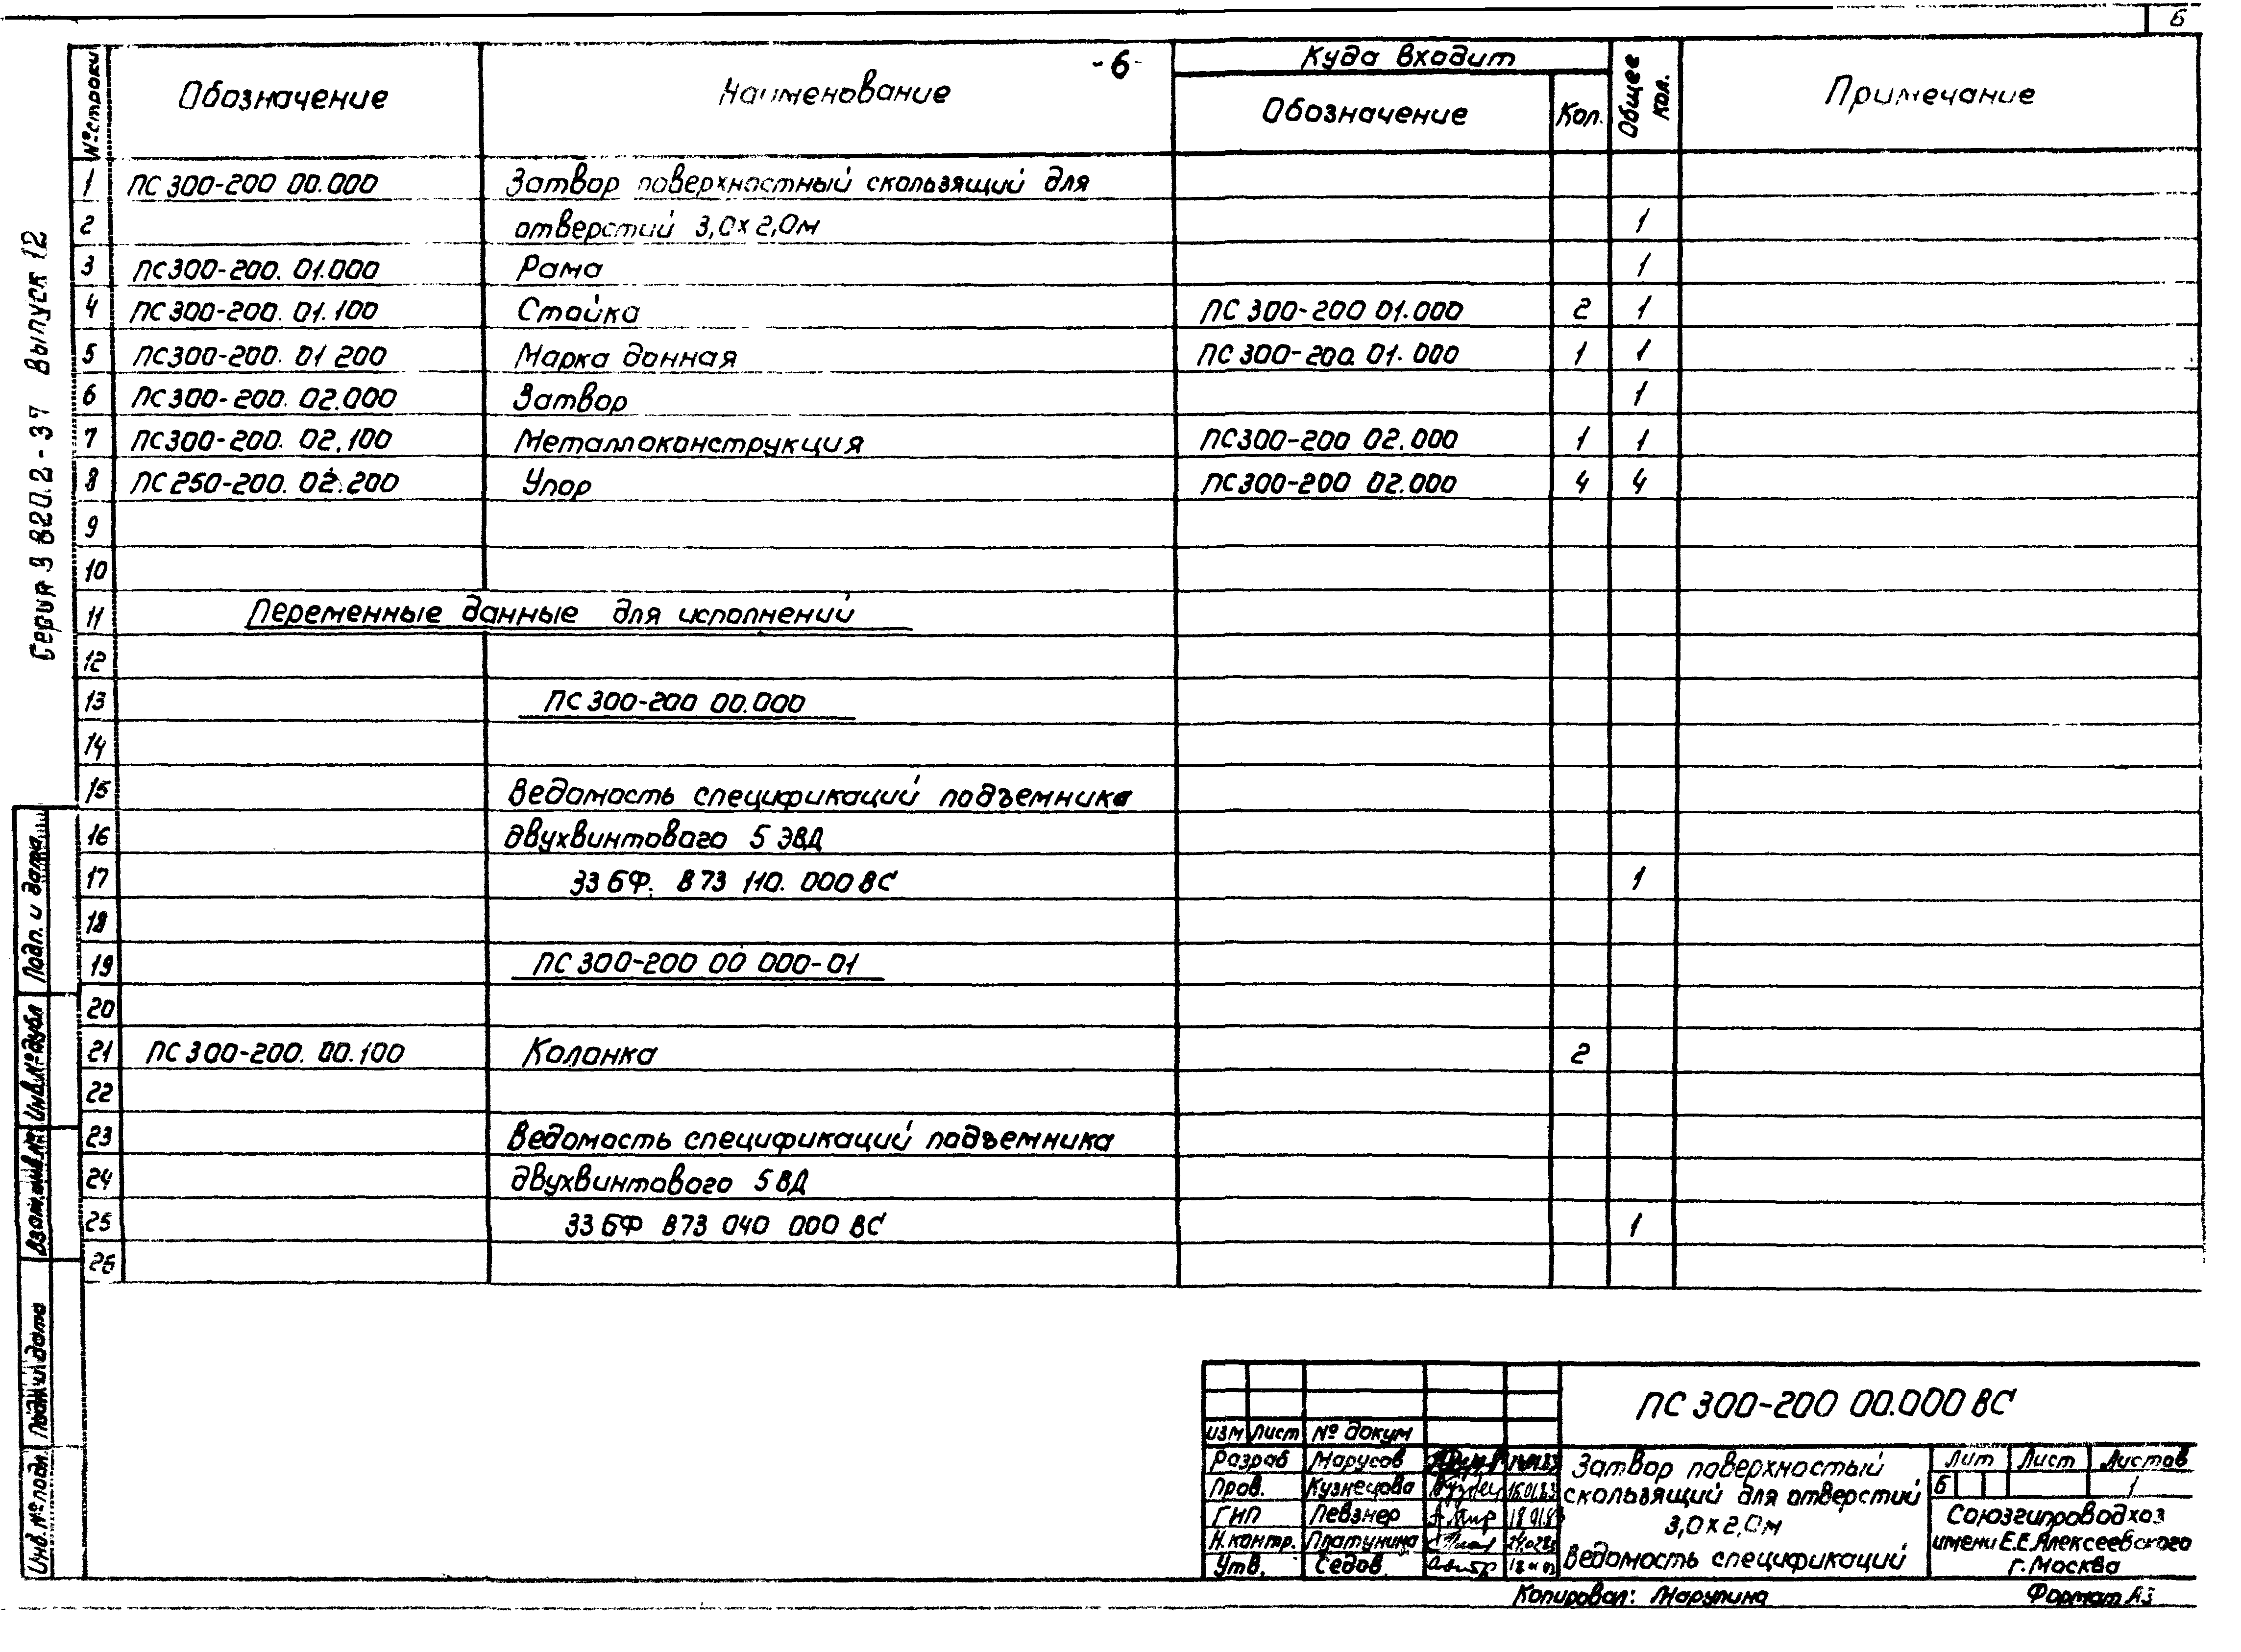 6
-6-
№ строки Обозначение Наименование Куда входит Общее кол. Примечание
Обозначение Кол.
1 ПС 300-200 00.000 Затвор поверхностный скользящий для
2 отверстий 3,0×2,0м 1
3 ПС300-200. 01.000 Рама 1
4 ПС300-200. 01.100 Стойка ПС 300-200 01.000 2 1
5 ПС300-200. 01 200 Марка донная ПС 300-200. 01.000 1 1
6 ПС300-200. 02.000 Затвор 1
7 ПС300-200. 02.100 Металлоконструкция ПС300-200 02.000 1 1
8 ПС250-200. 02.200 Упор ПС300-200 02.000 4 4
9
10
11 Переменные данные для исполнений
12
13 ПС 300-200 00.000
14
15 Ведомость спецификаций подъемника
16 двухвинтового 5 ЭВД
17 33 БФ. В73 110. 000 ВС 1
18
19 ПС 300-200 00 000-01
20
21 ПС 300-200. 00.100 Колонка 2
22
23 Ведомость спецификаций подъемника
24 двухвинтового 5 ВД
25 33 БФ В73 040 000 ВС 1
26
Серия 3 820.2-37 Выпуск 12
Подп. и дата
Инв.№ дубл
Взам.инв.№
Подп и дата
Инв.№ подл.
ПС 300-200 00.000 ВС
изм Лист № докум
Разраб Марусов
Пров. Кузнецова
ГНП Левзнер
Н.контр. Платунина
Утв. Седов
Затвор поверхностый
скользящий для отверстий
3,0×2,0м
Ведомость спецификаций
Лит Лист Листов
Б 1
Союзгипроводхоз
имени Е.Е.Алексеевского
г.Москва
Копировал: Марупина Формат А3